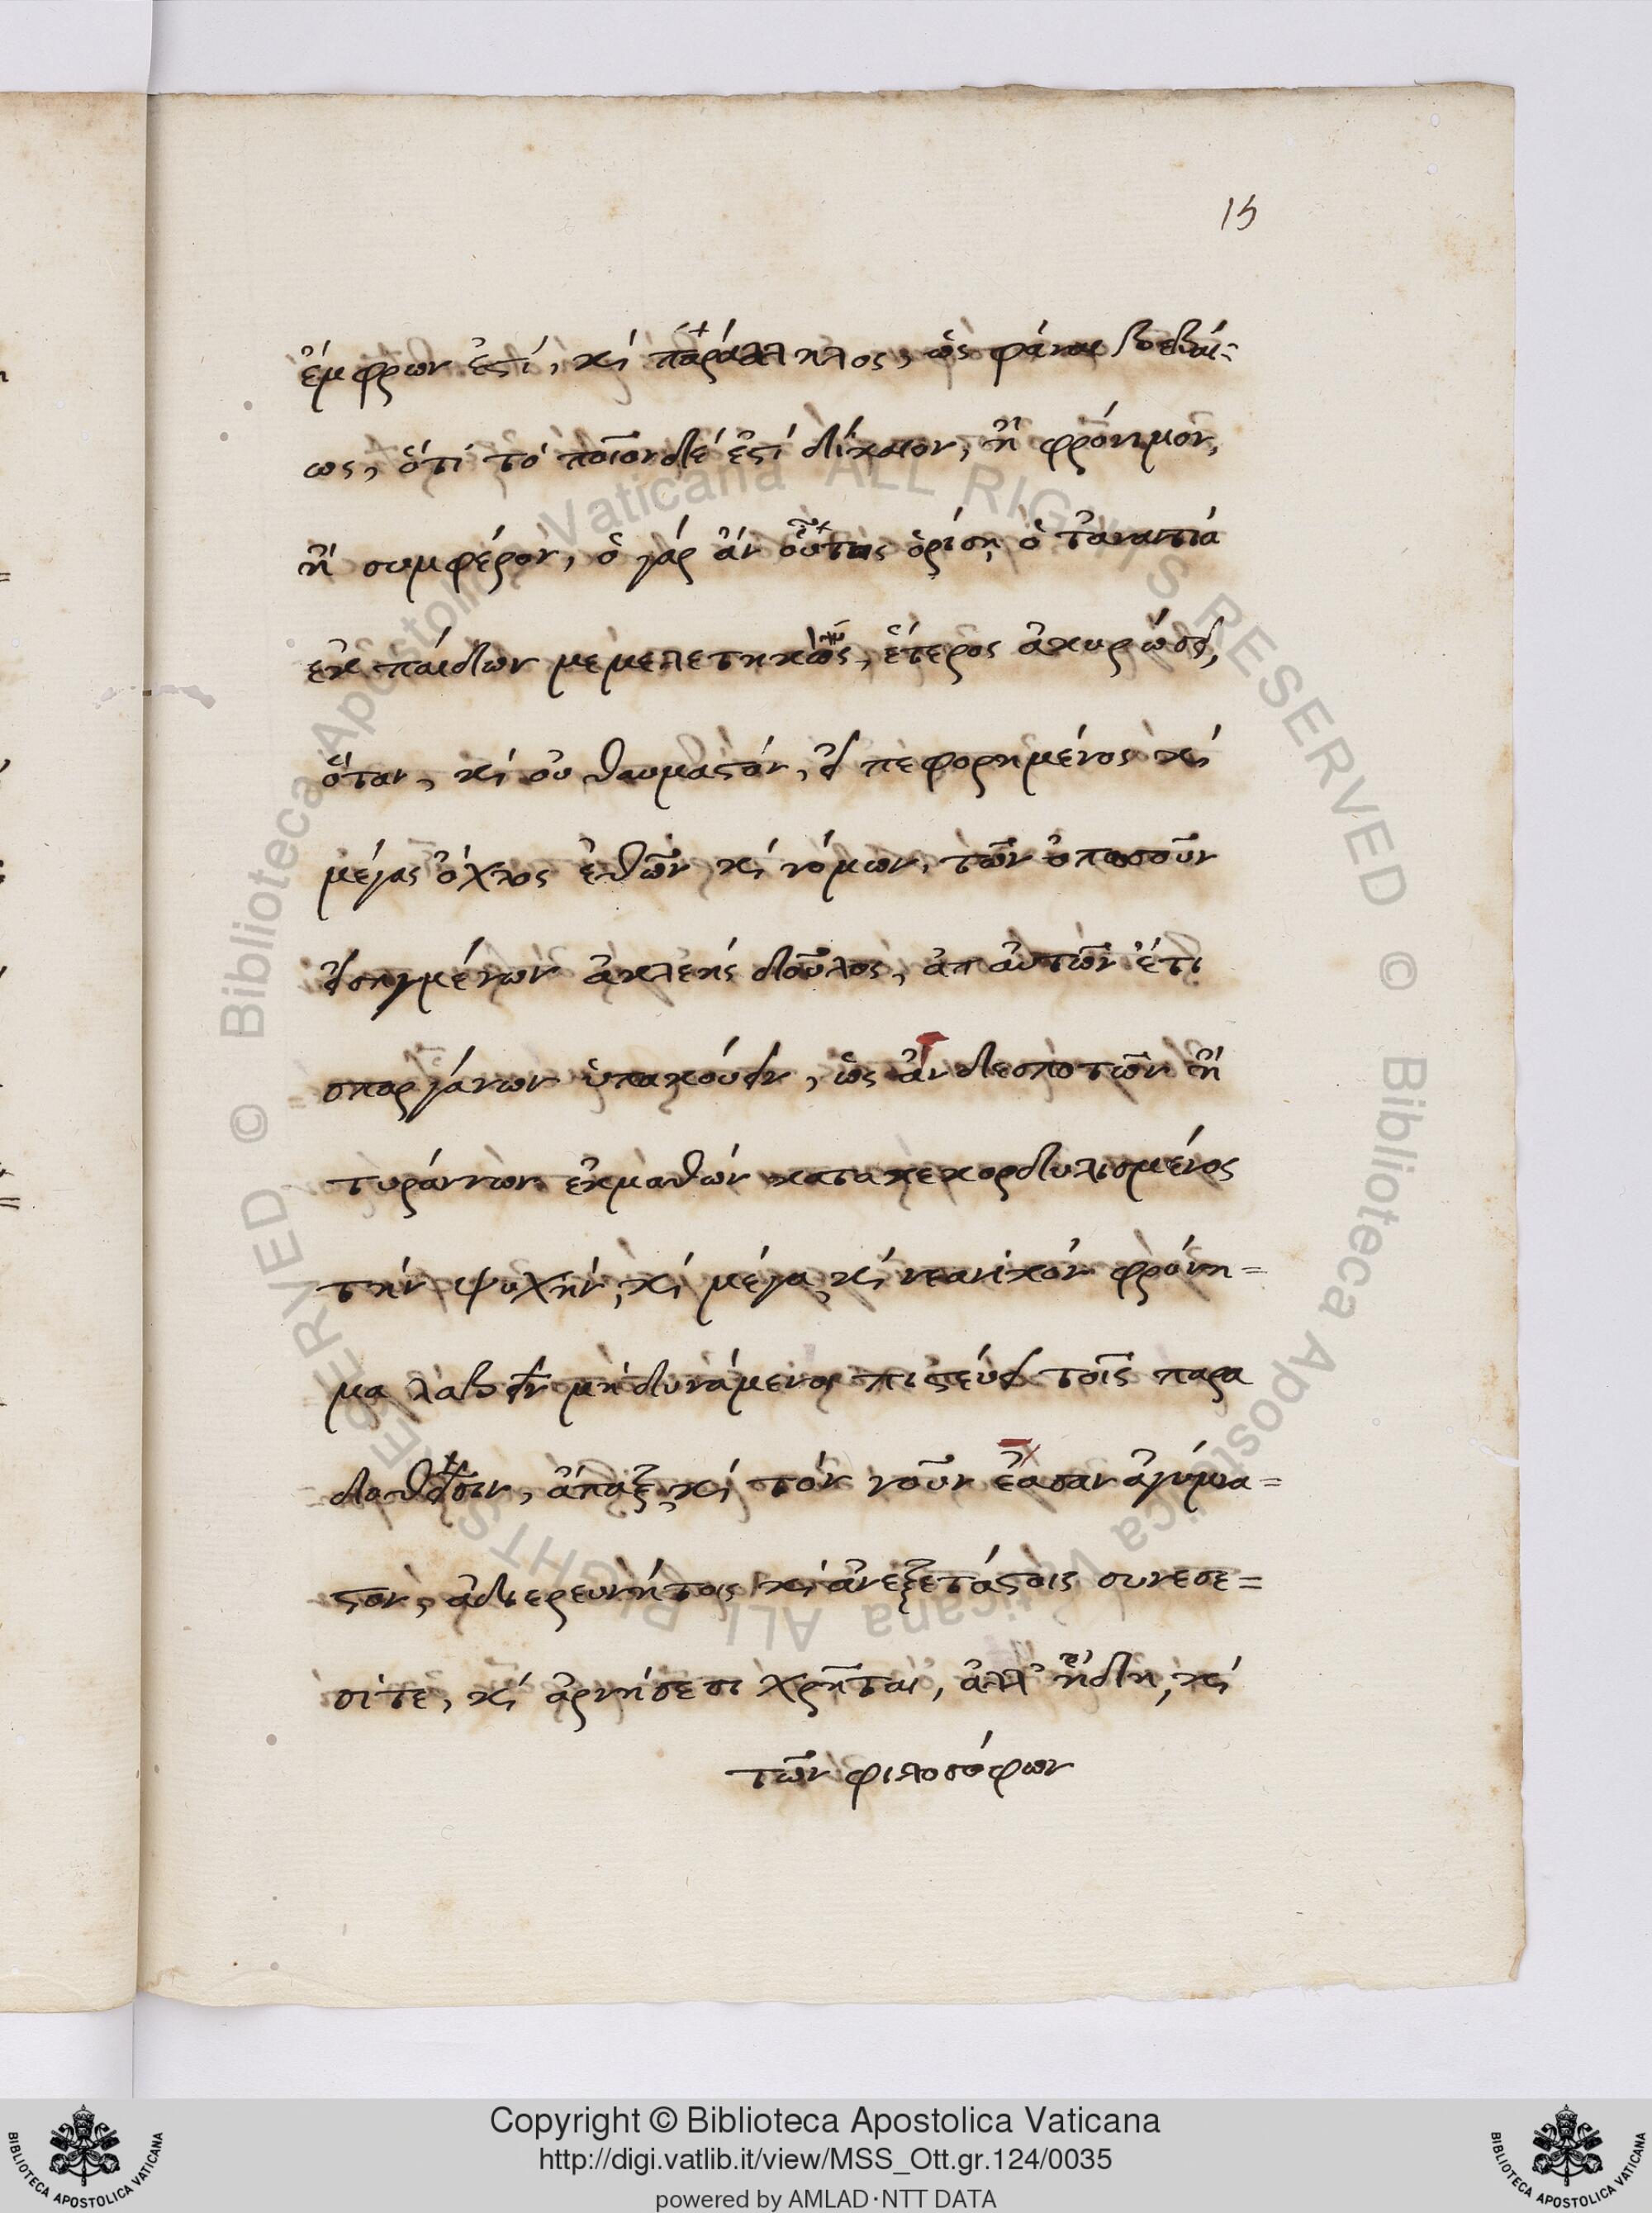 15
ἔμφρων ἐστί, καὶ παράλληλος, ὡς φάναι βεβαί=
ως, ὅτι τὸ ποῖον δέ ἐστί δίκαιον, ἢ φρόνιμον,
ἢ συμφέρον, ὃ γάρ ἂν οὗτος ὁρίση, ὁ τἀναντία
ἐκ παίδων μεμελετηκὼς, ἕτερος ἀκυρώσει,
ὅταν, καὶ οὐ θαυμαστόν, εἰ πεφορημένος καὶ
μέγας ὄχλος ἐθῶν καὶ νόμων, τῶν ὁπωσοῦν
εἰσηγμένων ἀκλεὴς δοῦλος, ἀπ αὐτῶν ἔτι
σπαργάνων ὑπακούειν, ὡς ἂν δεσποτῶν ἢ
τυράννων ἐκμαθὼν κατακεκορδυλισμένος
τὴν ψυχὴν, καὶ μέγα, καὶ νεανικὸν φρόνη=
μα λαβεῖν μὴ δυνάμενος πιστεύει τοῖς παρα
δοθεῖσιν, ἅπαξ, καὶ τὸν νοῦν ἐάσαν ἀγύμνα=
στον, ἀδιερευνήτοις καὶ ἀνεξετάστοις συνέσε=
σί τε, καὶ ἀρνήσεσι χρῆται, ἀλλ ἤδη, καὶ
τῶν φιλοσόφων
Copyright © Biblioteca Apostolica Vaticana
http://digi.vatlib.it/view/MSS_Ott.gr.124/0035
powered by AMLAD·NTT DATA